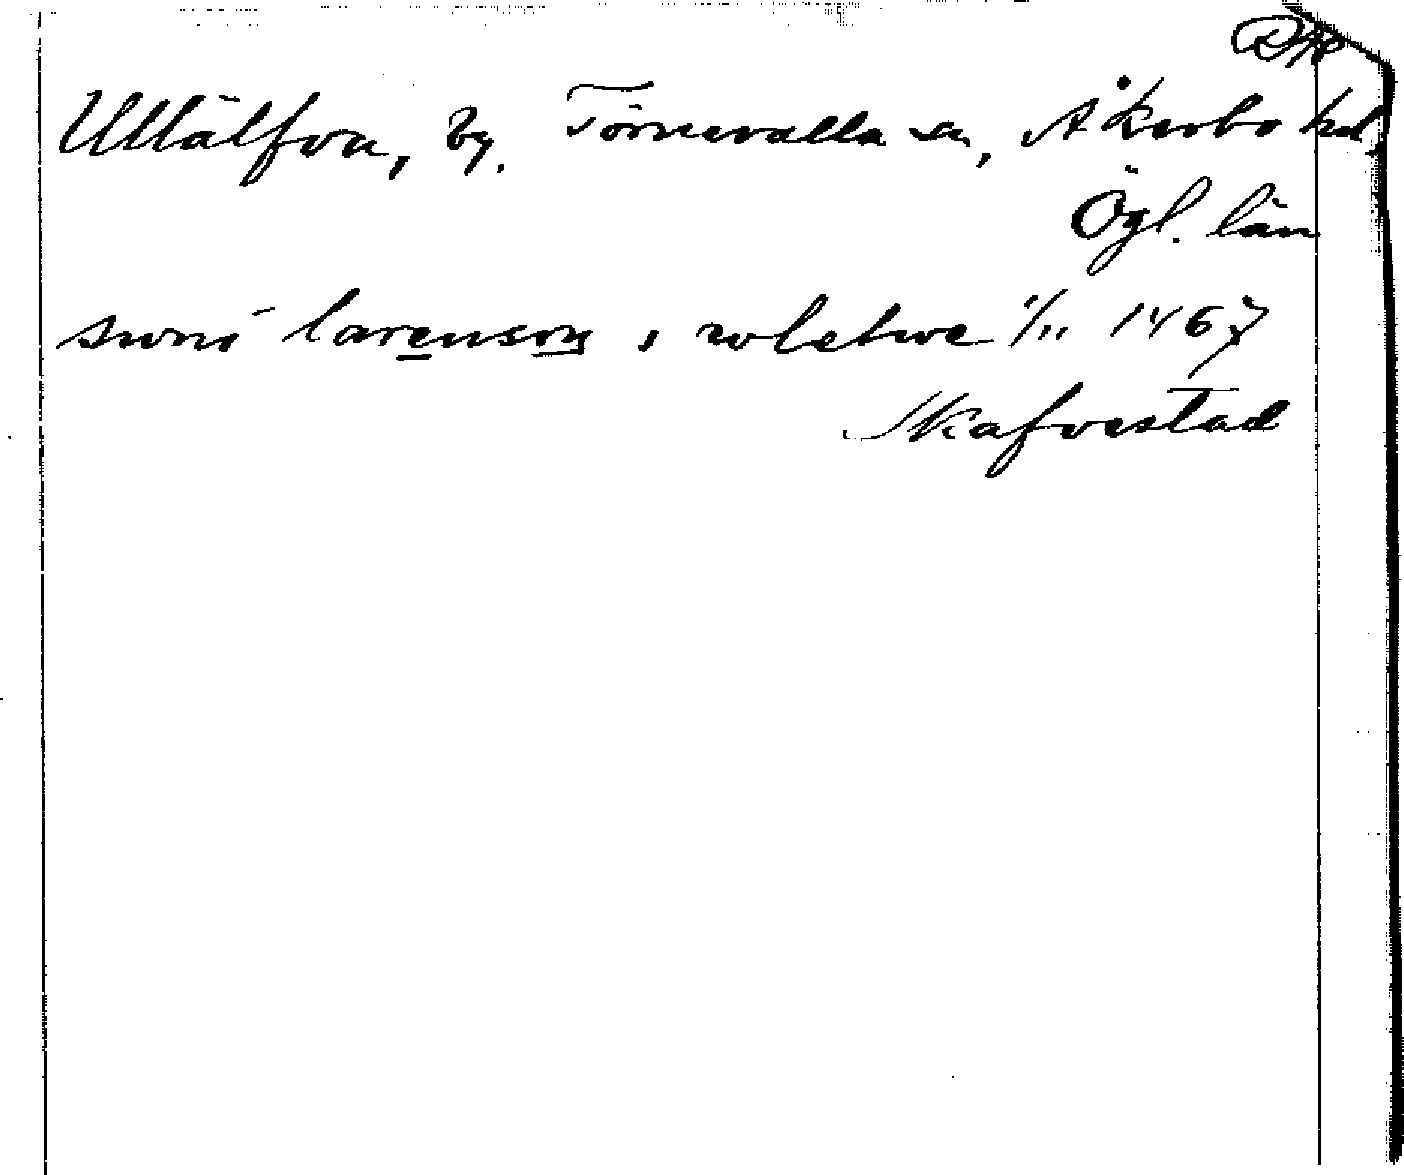 Ullälfva, by. Törnevalla sn, Åkerbo hd.
Ögl. län
larenson i wletwe 1/11 1467
Skafvestad